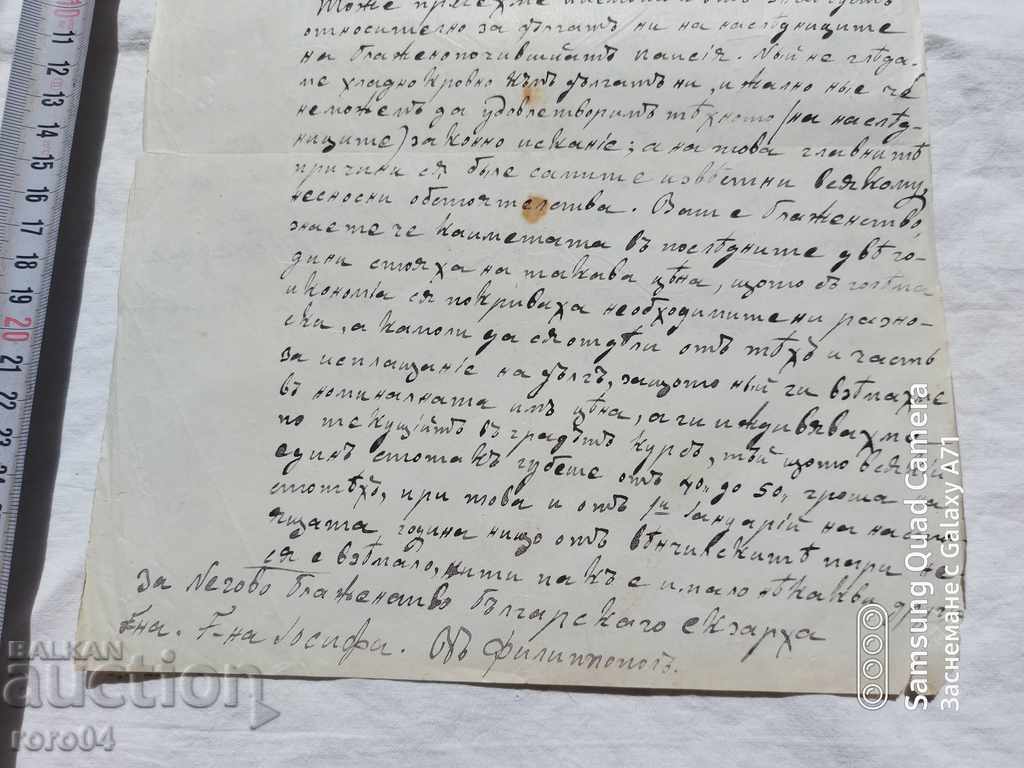 относително за дългатъ ни на наслѣдниците
на блаженопочившийтъ Паисія. Ный не глѣда-
ме хладнокровно къмъ дългатъ ни, и жално ные че
неможемъ да удовлетворимъ тѣхното (на наслѣд-
ниците) законно исканіе; а на това главнитѣ
причини сѫ быле самите извѣстни всякому,
несносни обстоятелства. Ваше блаженство,
знаете че каиметата въ послѣдните двѣ го-
дини стояха на такава цѣна, щото съ голѣма
икономіа ся покриваха необходимите ни разно-
ски, а камоли да ся отдѣли отъ тѣхъ и часть
за исплащаніе на дългъ, защото ный ги взѣмахме
въ номиналната имъ цѣна, а ги иждивявахме
по текущийтъ въ градътъ курсъ, тъй щото всякий
единъ стотакъ губеше отъ 40,, до 50,, гроша на
стотѣхъ, при това и отъ 1й Януарій на наст-
ящата година нищо отъ вѣнчилскитѣ пари не
ся е взѣмало, нити пакъ е имало нѣкаква друг
За Негово Блаженство Българскаго екзарха
Г-на. Г-на Іосифа. Въ Филиппополъ.
10
11
12
13
14
15
16
17
18
19
20
21
22
23
24
BALKAN
auction
roro04
Samsung Quad Camera
Заснемане с Galaxy A71